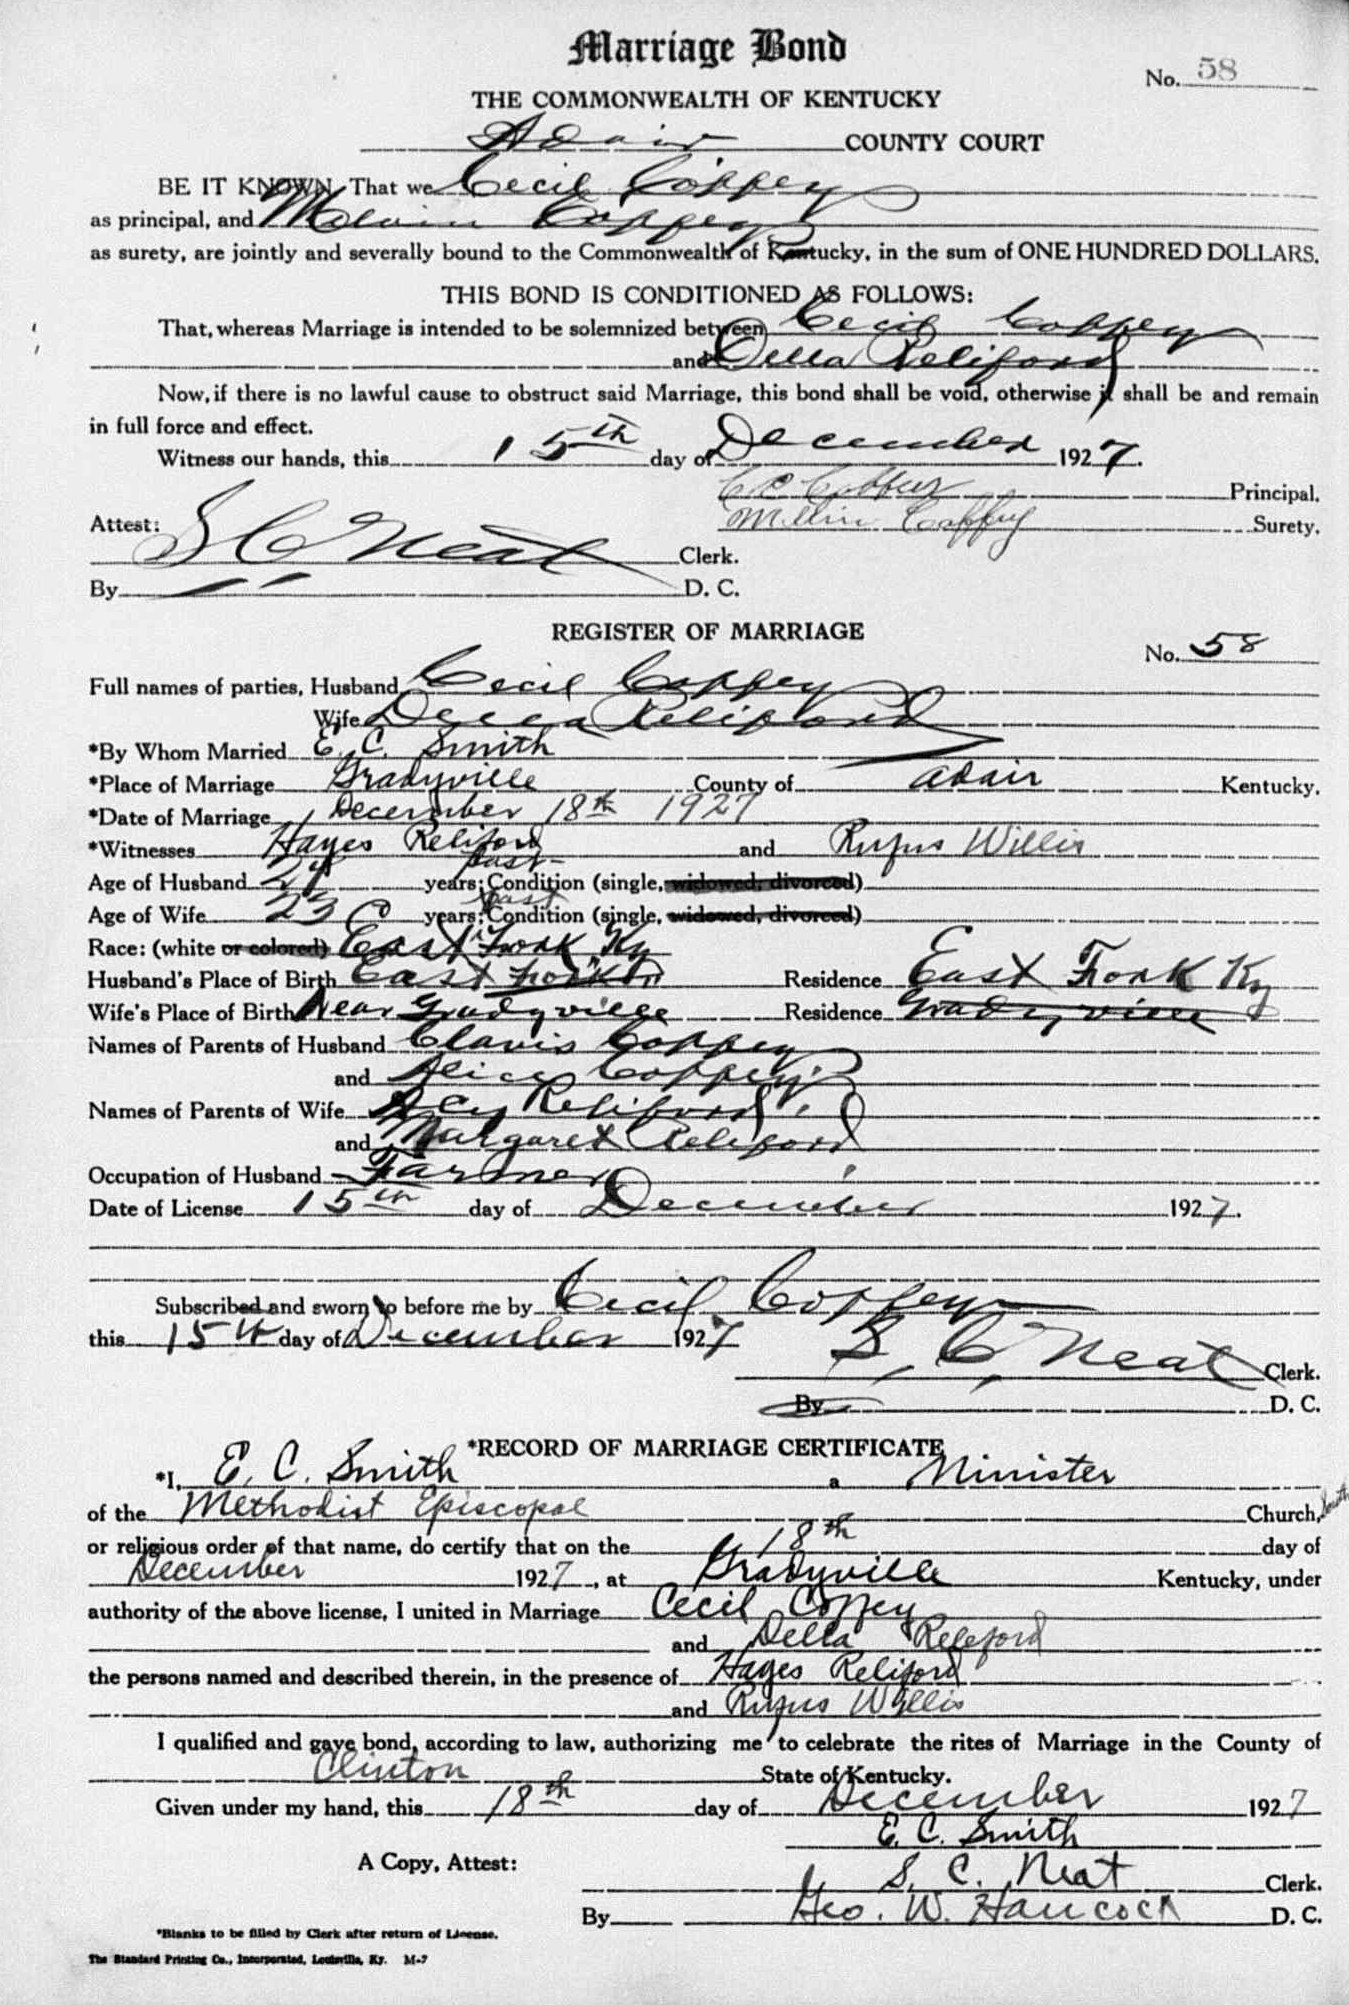 Marriage Bond
No. 58
THE COMMONWEALTH OF KENTUCKY
Adair COUNTY COURT
BE IT KNOWN, That we Cecil Coffey
as principal, and Melvin Coffey
as surety, are jointly and severally bound to the Commonwealth of Kentucky, in the sum of ONE HUNDRED DOLLARS.
THIS BOND IS CONDITIONED AS FOLLOWS:
That, whereas Marriage is intended to be solemnized between Cecil Coffey
and Della Reliford
Now, if there is no lawful cause to obstruct said Marriage, this bond shall be void, otherwise it shall be and remain
in full force and effect.
Witness our hands, this 15th day of December 1927.
Coffey Principal.
Coffey Surety.
Attest: S C Neat Clerk.
By D. C.
REGISTER OF MARRIAGE
No. 58
Full names of parties, Husband Cecil Coffey
Wife Della Reliford
*By Whom Married E. C. Smith
*Place of Marriage Gradyville County of Adair Kentucky.
*Date of Marriage December 18th 1927
*Witnesses Hayes Reliford and Rufus Willis
Age of Husband 24 past years; Condition (single, widowed, divorced)
Age of Wife 23 past years; Condition (single, widowed, divorced)
Race: (white or colored) East Fork Ky
Husband's Place of Birth East Fork Residence East Fork Ky
Wife's Place of Birth Near Gradyville Residence Gradyville
Names of Parents of Husband Clavis Coffey
and Alice Coffey
Names of Parents of Wife Acy Reliford
and Margaret Reliford
Occupation of Husband Farmer
Date of License 15th day of December 1927.
Subscribed and sworn to before me by Cecil Coffey
this 15th day of December 1927
S. C. Neat Clerk.
By D. C.
*RECORD OF MARRIAGE CERTIFICATE
*I, E. C. Smith a Minister
of the Methodist Episcopal Church, South
or religious order of that name, do certify that on the 18th day of
December 1927, at Gradyville Kentucky, under
authority of the above license, I united in Marriage Cecil Coffey
and Della Releford
the persons named and described therein, in the presence of Hayes Reliford
and Rufus Willis
I qualified and gave bond, according to law, authorizing me to celebrate the rites of Marriage in the County of
Clinton State of Kentucky.
Given under my hand, this 18th day of December 1927
E. C. Smith
A Copy, Attest: S. C. Neat Clerk.
By Geo. W. Hancock D. C.
*Blanks to be filled by Clerk after return of License.
The Standard Printing Co., Incorporated, Louisville, Ky. M-7